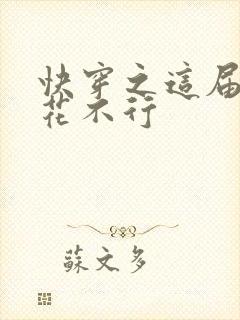 快穿之這屆
花不行
蘇文多